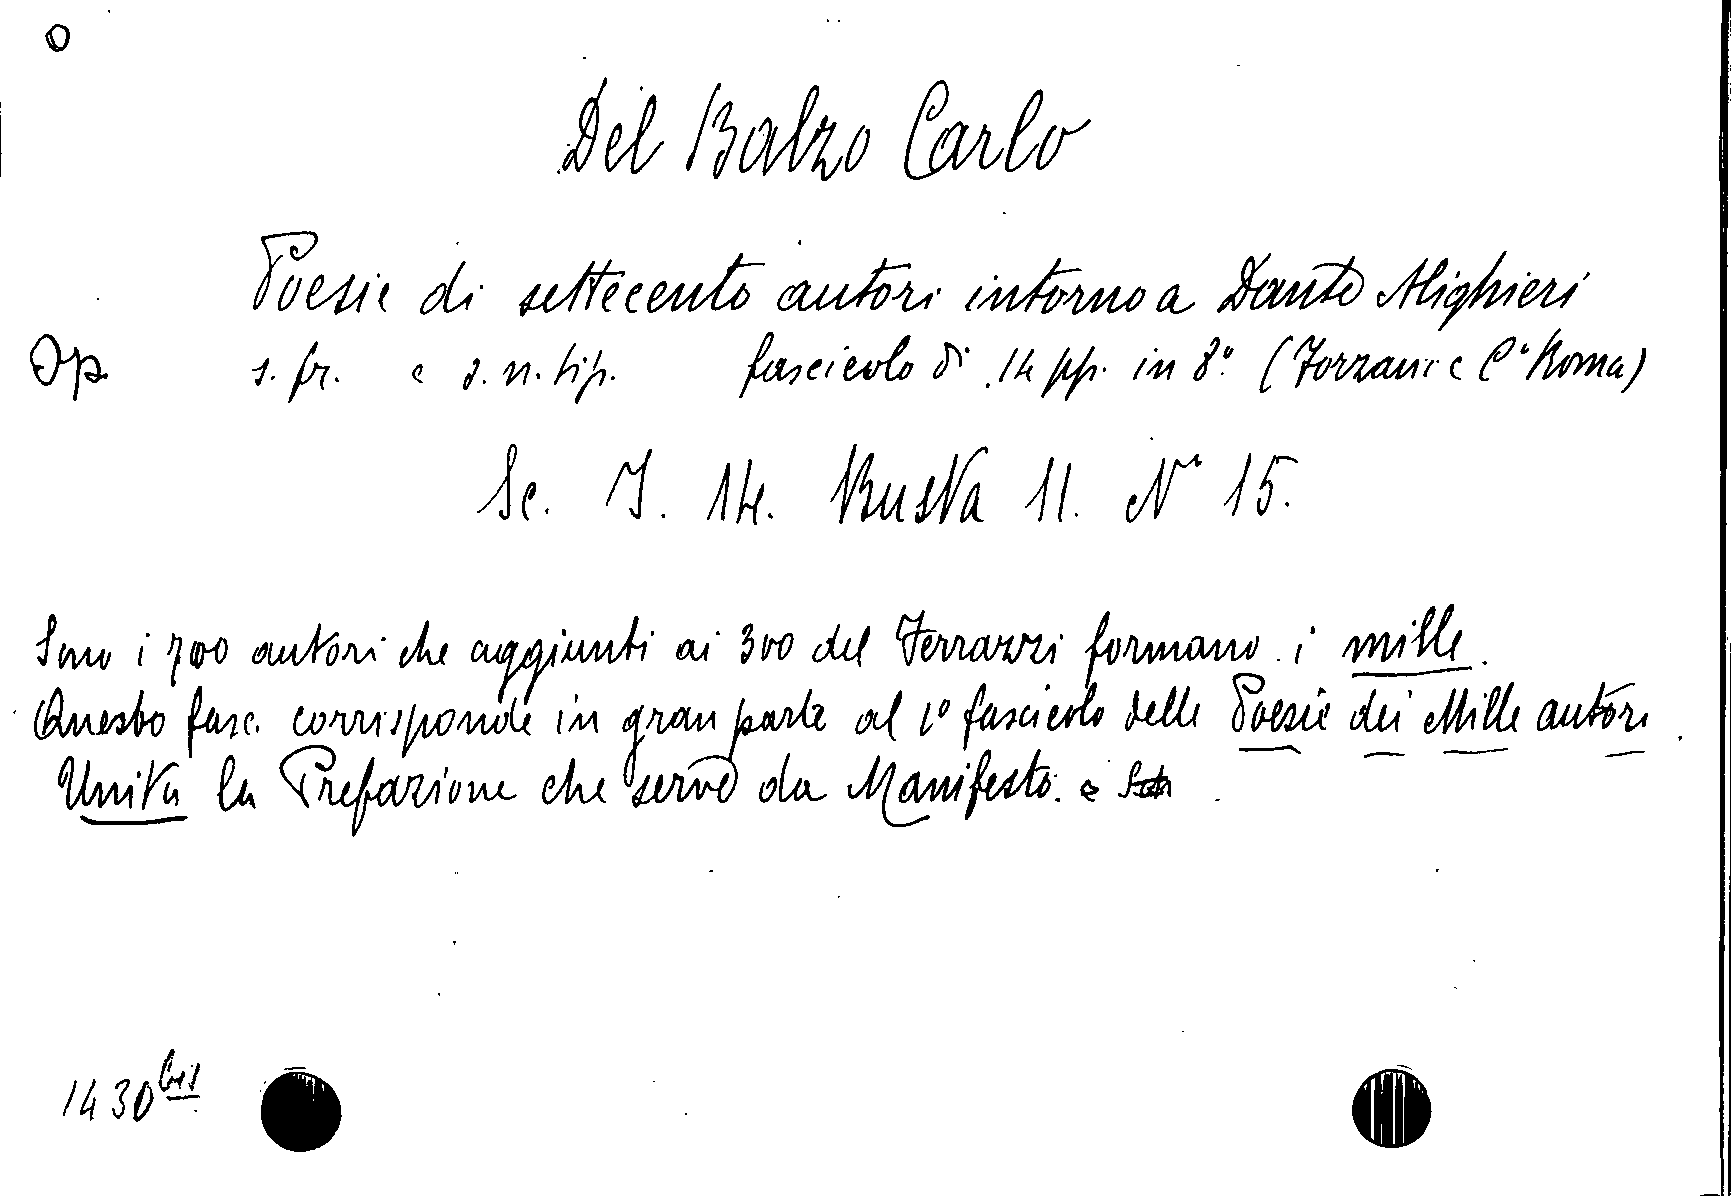 Del Balzo Carlo
Poesie di settecento autori intorno a Dante Alighieri
Op. s. fr. e s. n. tip. fascicolo di 14 pp. in 8° (Forzani e C° Roma)
Sc. I. 14. Busta 11. N° 15.
Sono i 700 autori che aggiunti ai 300 del Ferrazzi formano i mille.
Questo fasc. corrisponde in gran parte al 1° fascicolo delle Poesie dei Mille autori
Unita la Prefazione che serve da Manifesto. e
1430 bis